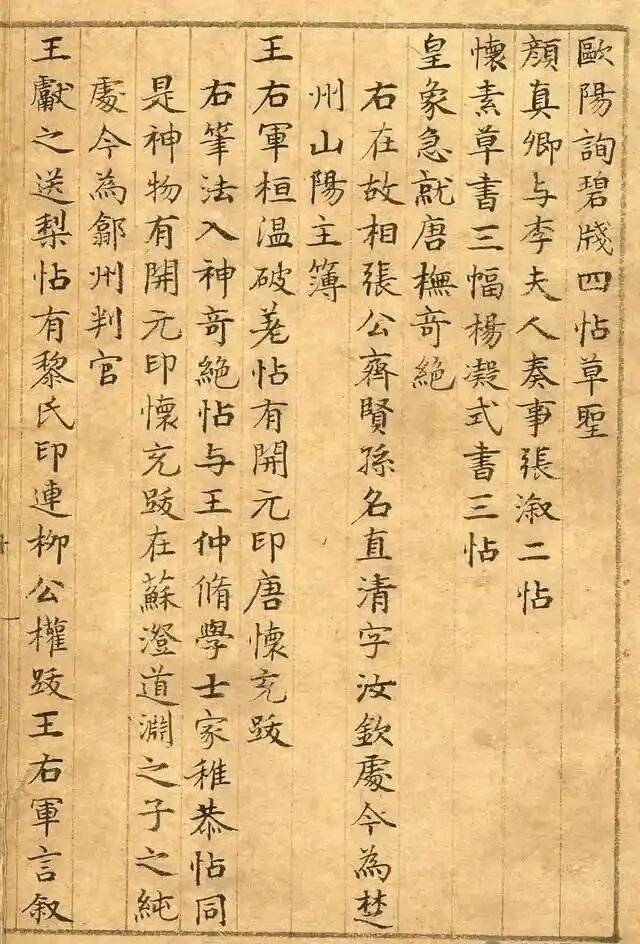 歐陽詢碧牋四帖草聖
顏真卿与李夫人奏事張溆二帖
懷素草書三幅楊凝式書三帖
皇象急就唐橅奇絕
右在故相張公齊賢孫名直清字汝欽處今為楚
州山陽主簿
王右軍桓温破羗帖有開元印唐懷充跋
右筆法入神奇絕帖与王仲脩學士家稚恭帖同
是神物有開元印懷充跋在蘇澄道淵之子之純
處今為鄜州判官
王獻之送梨帖有黎氏印連柳公權跋王右軍言叙